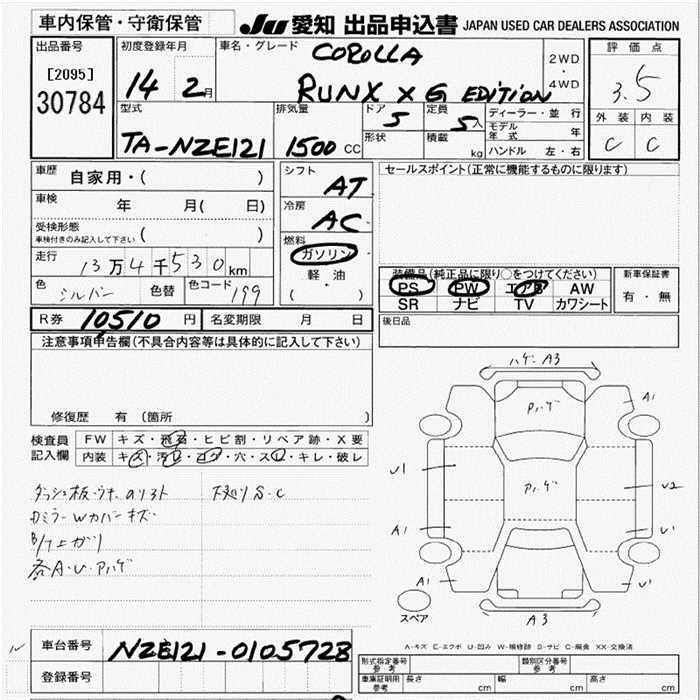 車内保管・守衛保管
JU 愛知 出品申込書 JAPAN USED CAR DEALERS ASSOCIATION
出品番号
[2095]
30784
初度登録年月
14 2月
車名・グレード
COROLLA
RUNX X G EDITION
2WD
・
4WD
評価点
3.5
外装 内装
C C
型式
TA-NZE121
排気量
1500 CC
ドア
5
形状
定員
5人
積載
kg
ディーラー・並行
モデル年式 年
ハンドル 左・右
車歴
自家用・( )
車検
年 月( 日)
受検形態
車検付きのみ記入して下さい ( )
走行
13万4千530km
色
シルバー
色替
色コード 199
シフト
AT
冷房
AC
燃料
ガソリン
軽油
( ・ )
セールスポイント(正常に機能するものに限ります)
装備品(純正品に限り○をつけてください)
PS PW エアB AW
SR ナビ TV カワシート
新車保証書
有・無
後日品
R券 10510 円
名変期限 月 日
注意事項申告欄(不具合内容等は具体的に記入して下さい)
修復歴 有 (箇所 )
検査員
記入欄
FW キズ・飛石・ヒビ割・リペア跡・X要
内装 キズ・汚レ・コゲ・穴・スレ・キレ・破レ
下廻りS・C
ミラーWカバーキズ
各A・U・Pハゲ
ハゲ・A3
Pハゲ
A1
U1
Pハゲ
U2
A1
U1
A1
U1
A3
スペア
A-キズ E-エクボ U-凹み W-補修跡 S-サビ C-腐食 XX-交換済
車台番号
NZE121-0105728
登録番号
形式指定番号
参考
類別区分番号
参考
車庫証明用
参考
長さ cm
幅 cm
高さ cm